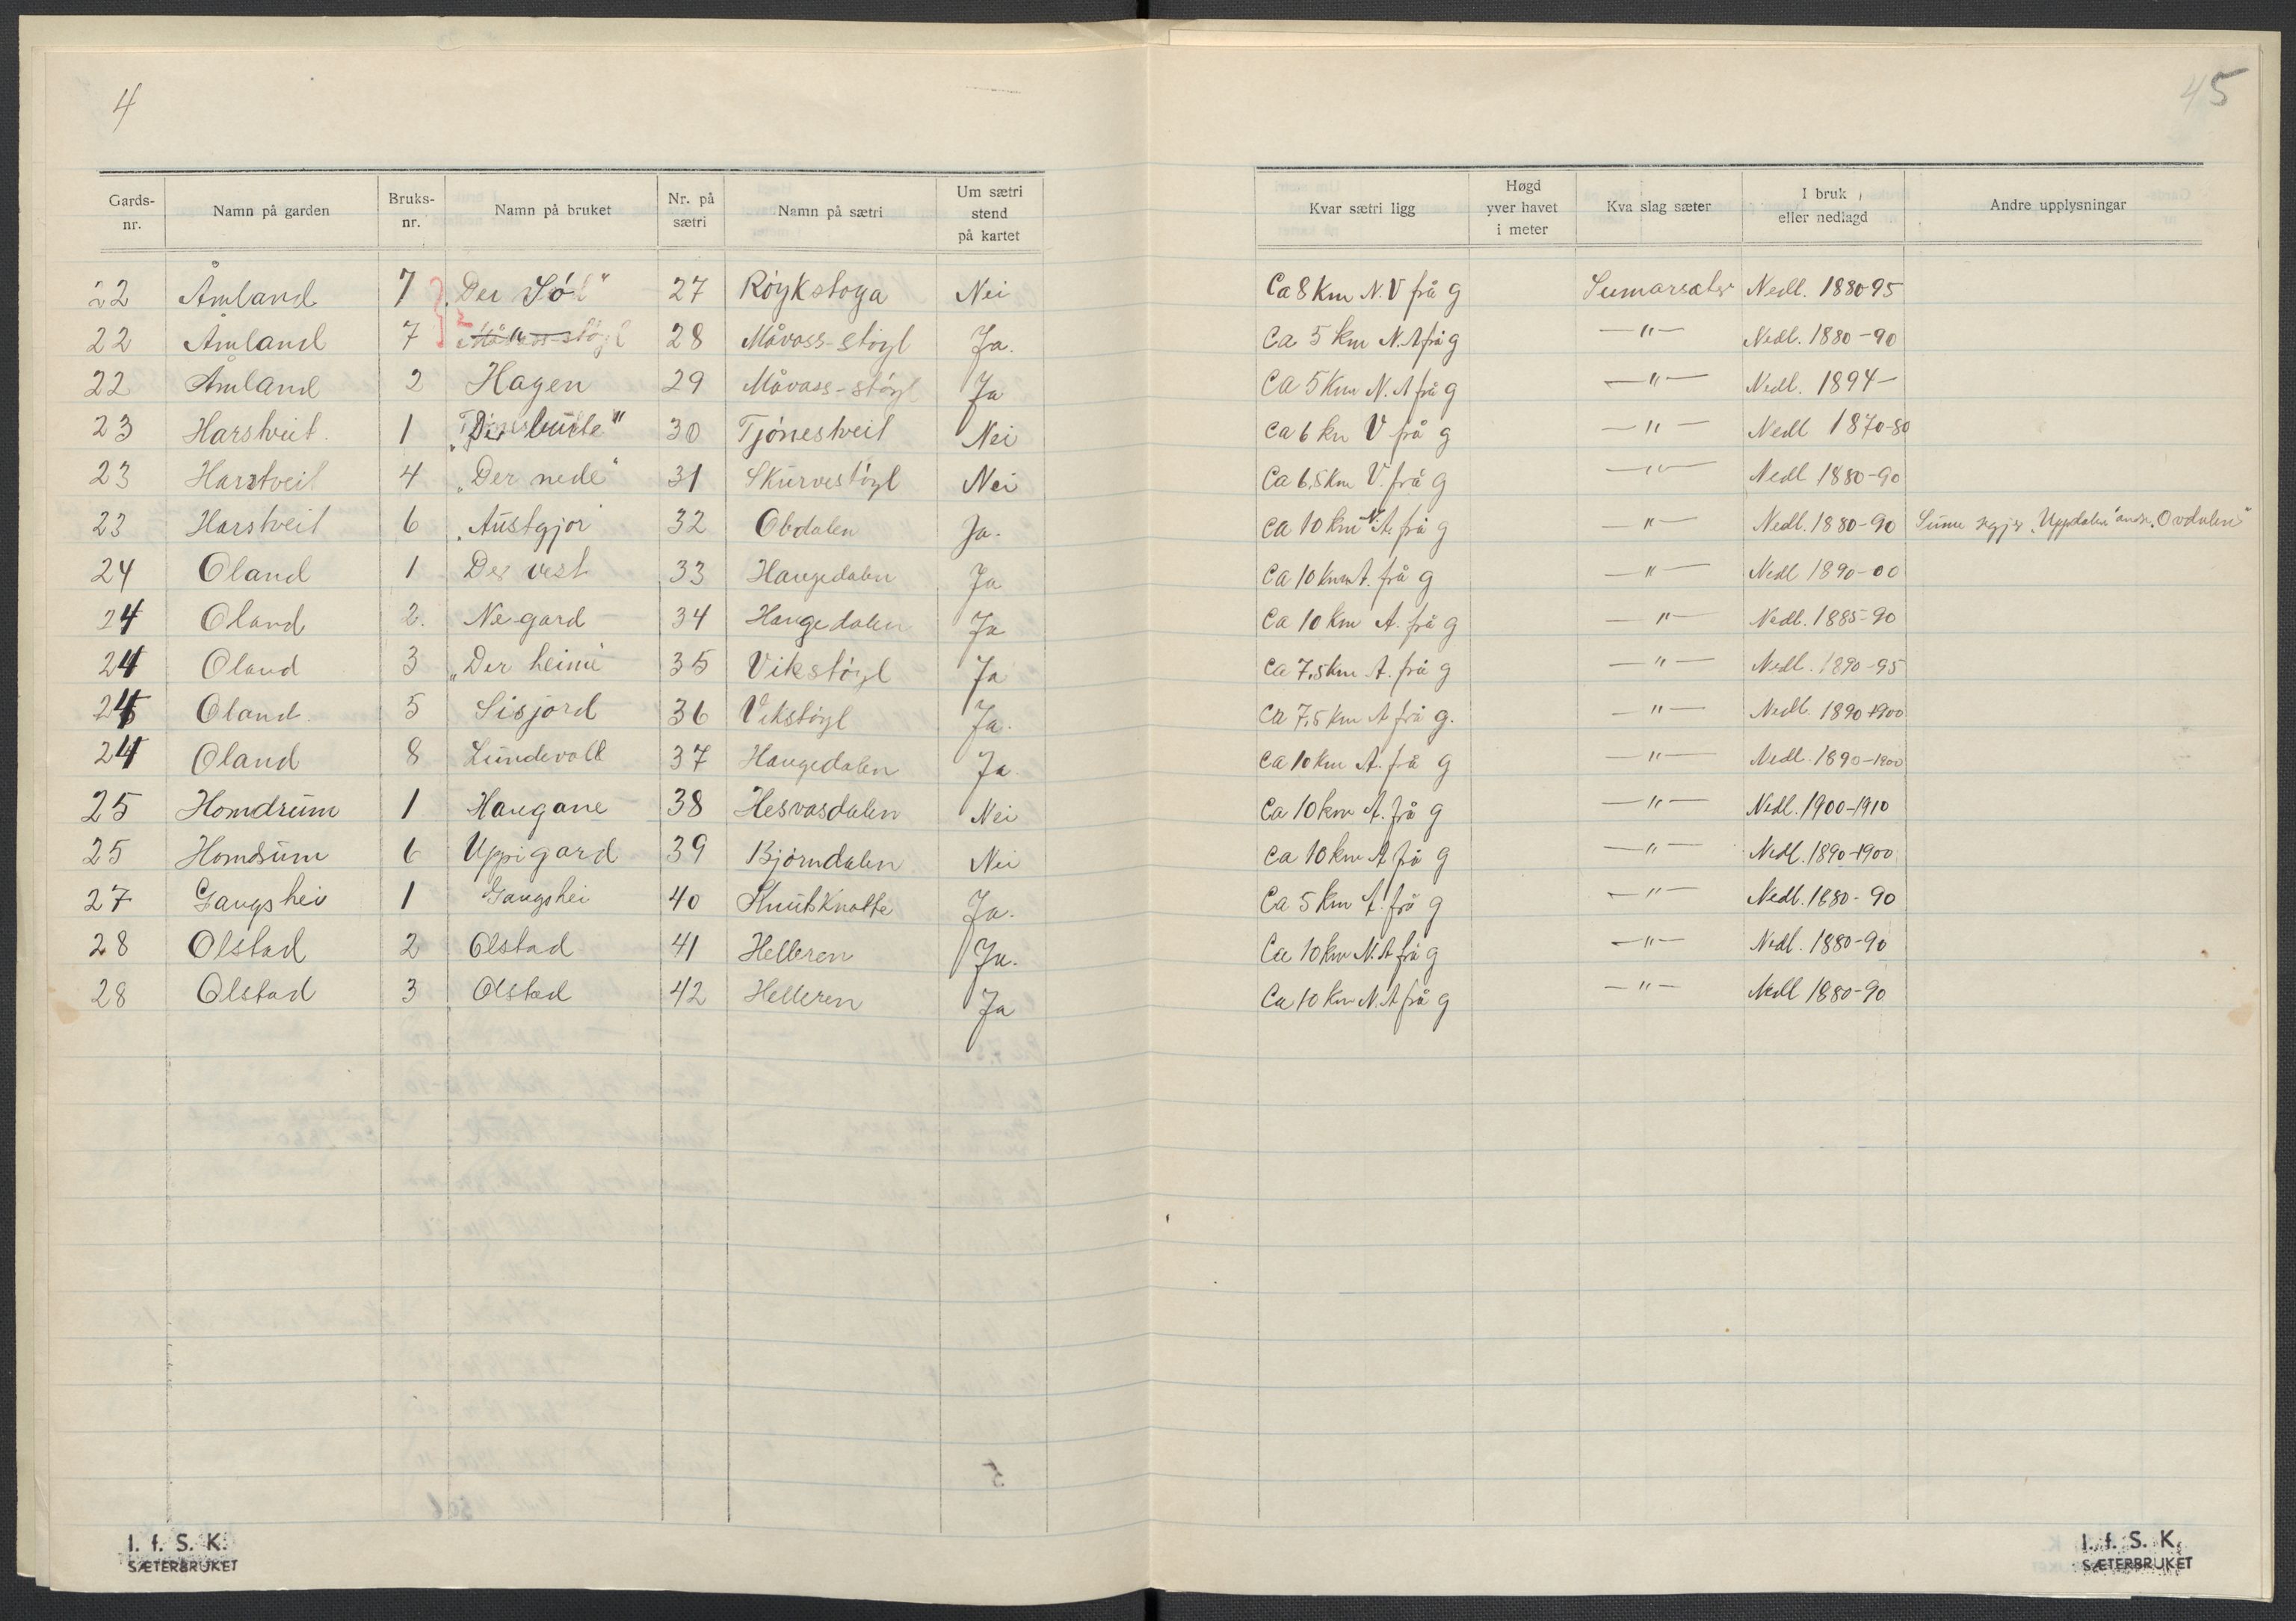 4
45
Gards-nr. Namn på garden Bruks-nr. Namn på bruket Nr. på sætri Namn på sætri Um sætri stend på kartet Kvar sætri ligg Høgd yver havet i meter Kva slag sæter I bruk eller nedlagd Andre upplysningar
22 Åmland 7 „Der Sø" 27 Røykstoga Nei Ca 8 km N.V frå g Sumarsæter Nedl. 1880-95
22 Åmland 7 28 Måvass-støyl Ja. Ca 5 km N.A frå g —"— Nedl. 1880-90
22 Åmland 2 Hagen 29 Måvass-støyl Ja Ca 5 km N.A frå g —"— Nedl. 1894-
23 Harstveit. 1 30 Tjønestveit Nei Ca 6 km V frå g —"— Nedl 1870-80
23 Harstveit 4 „Der nede" 31 Skurvestøyl Nei Ca 6,5 km V. frå g —"— Nedl 1880-90
23 Harstveit 6 „Austgjor 32 Obdalen Ja. Ca 10 km frå g —"— Nedl. 1880-90 Sume segjer „Uppdalen" andr. „Ovdalen"
24 Oland 1 Der vest 33 Haugedalen Ja Ca 10 km A. frå g —"— Nedl 1890-00
24 Oland 2. Ne-gard 34 Haugedalen Ja Ca 10 km A. frå g —"— Nedl. 1885-90
24 Oland 3 „Der heime 35 Vikstøyl Ja Ca 7,5 km A. frå g —"— Nedl. 1890-95
24 Oland. 5 Sisjord 36 Vikstøyl Ja. Ca 7,5 km A frå g. —"— Nedl. 1890-1900
24 Oland 8 Lundevoll 37 Haugedalen Ja Ca 10 km A. frå g —"— Nedl. 1890-1900
25 Homdrum 1 Haugane 38 Hesvasdalen Nei Ca 10 km A. frå g —"— Nedl. 1900-1910
25 Homdrum 6 Uppigard 39 Bjørndalen Nei Ca 10 km A frå g —"— Nedl. 1890-1900
27 Gangshei 1 Gangshei 40 Knutsknatte Ja. Ca 5 km A. frå g —"— Nedl. 1880-90
28 Olstad 2 Olstad 41 Helleren Ja. Ca 10 km N.A frå g —"— Nedl. 1880-90
28 Olstad 3 Olstad 42 Helleren Ja Ca 10 km N.A frå g —"— Nedl 1880-90
I. f. S. K.
SÆTERBRUKET
I. f. S. K.
SÆTERBRUKET